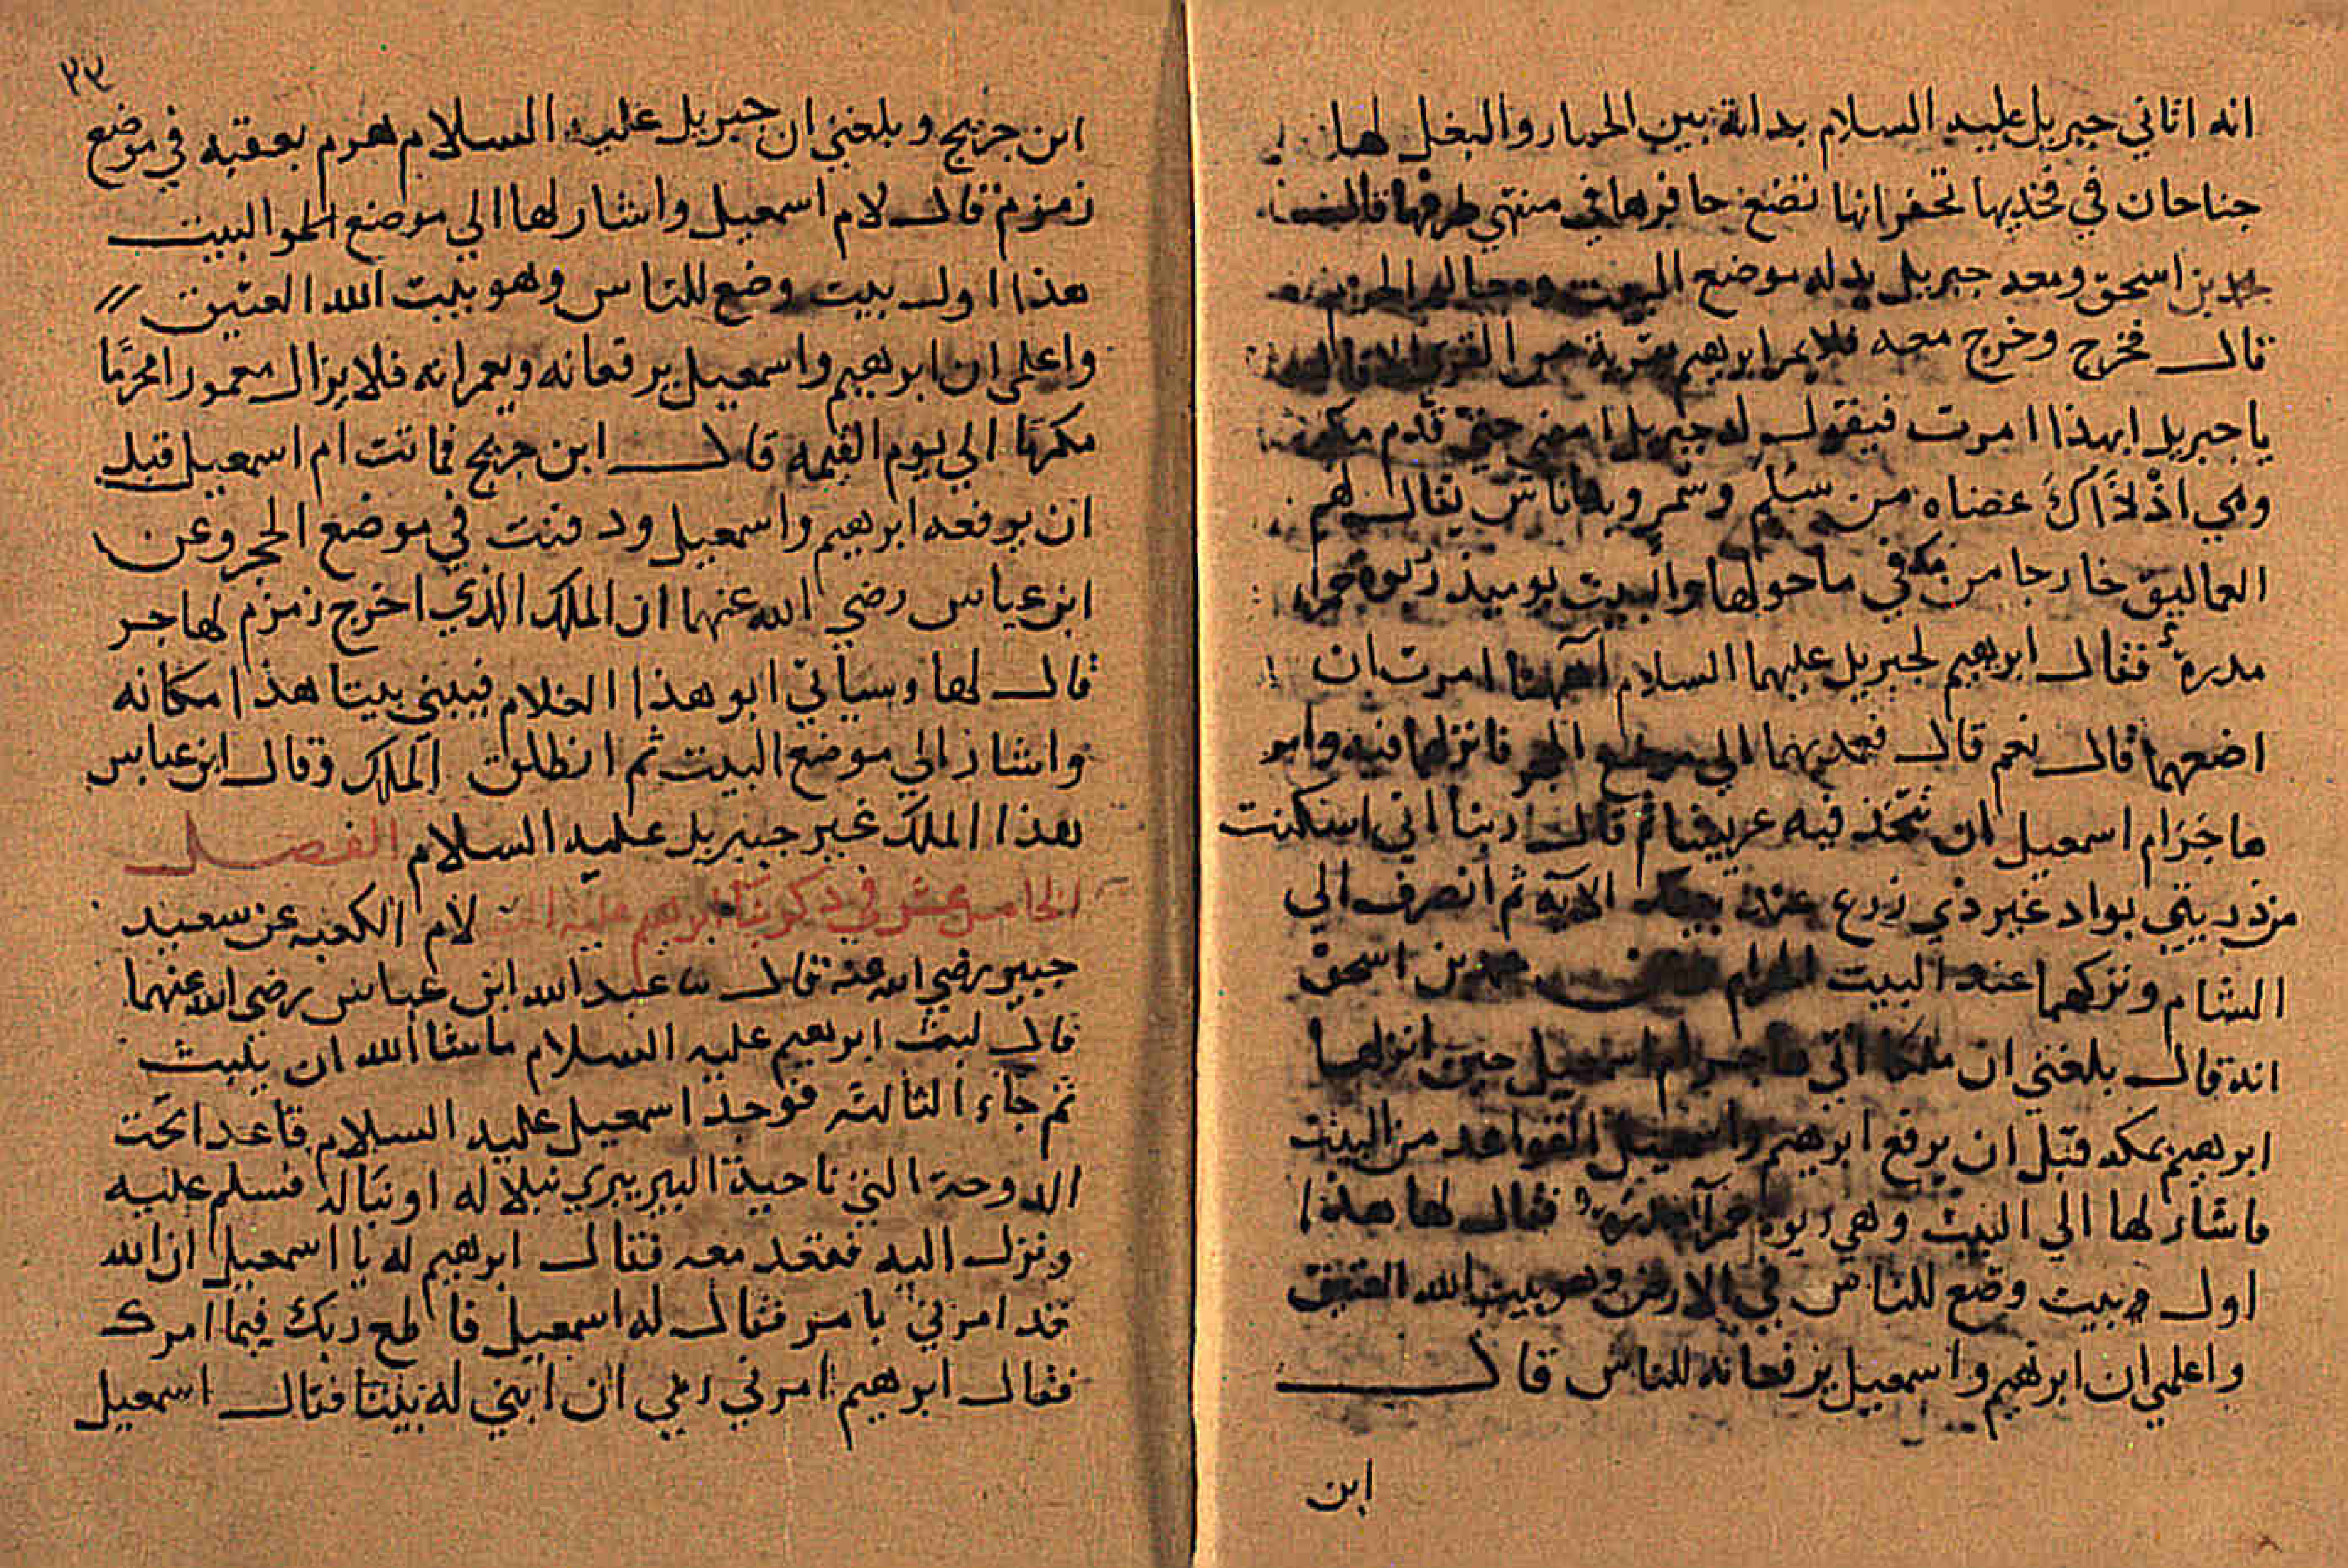 انه اتاني جبريل عليه السلام بدابة بين الحمار والبغل لها
جناحان في فخذيها تحفزانها تضع حافرها في منتهي طرفها قال
محمد بن اسحق ومعه جبريل يدله موضع البيت ومعالم الحرم
قال فخرج وخرج معه فلا يمر ابرهيم بقرية من القري الا قال
يا جبريل ابهذا امرت فيقول له جبريل امض حتي قدم مكة
وهي اذ ذاك عضاه من سلم وسمر وبها ناس يقال لهم
العماليق خارجا من مكة في ما حولها والبيت يوميذ ربوة حمرا
مدرة فقال ابرهيم لجبريل عليهما السلام اههنا امرت ان
اضعهما قال نعم قال فعمد بهما الي موضع الحجر فانزلهما فيه وامر
هاجر ام اسمعيل ان تتخذ فيه عريشا ثم قال ربنا اني اسكنت
من ذريتي بواد غير ذي زرع عند بيتك الاية ثم انصرف الي
الشام وتركهما عند البيت الحرام محمد بن اسحق
انه قال بلغني ان ملكا اتي هاجر ام اسمعيل حين انزلها
ابرهيم بمكة قبل ان يرفع ابرهيم واسمعيل القواعد من البيت
فاشار لها الي البيت وهي ربوة حمرا مدرة فقال لها هذا
اول بيت وضع للناس في الارض وهو بيت الله العتيق
واعلمي ان ابرهيم واسمعيل يرفعانه للناس قال
ابن
٢٣
ابن جريج وبلغني ان جبريل عليه السلام هزم بعقبه في موضع
زمزم قال لام اسمعيل واشار لها الي موضع البيت
هذا اول بيت وضع للناس وهو بيت الله العتيق
واعلمي ان ابرهيم واسمعيل يرفعانه ويعمرانه فلا يزال معمورا محرما
مكرما الي يوم القيمة قال ابن جريج فماتت ام اسمعيل قبل
ان يرفعه ابرهيم واسمعيل ودفنت في موضع الحجر وعن
ابن عباس رضي الله عنهما ان الملك الذي اخرج زمزم لهاجر
قال لها وسياتي ابو هذا الغلام فيبني بيتا هذا مكانه
واشار الي موضع البيت ثم انطلق الملك وقال ابن عباس
هذا الملك غير جبريل عليه السلام الفصل
الخامس عشر في ذكر بنا ابرهيم عليه لام الكعبة عن سعيد
جبير رضي الله عنه قال ثنا عبد الله ابن عباس رضي الله عنهما
قال لبث ابرهيم عليه السلام ما شا الله ان يلبث
ثم جاء الثالثة فوجد اسمعيل عليه السلام قاعدا تحت
الدوحة التي ناحية البير يبري نبلا له او نباله فسلم عليه
ونزل اليه فقعد معه فقال ابرهيم له يا اسمعيل ان الله
قد امرني بامر فقال له اسمعيل فاطع ربك فيما امرك
فقال ابرهيم امرني ربي ان ابني له بيتا فقال اسمعيل